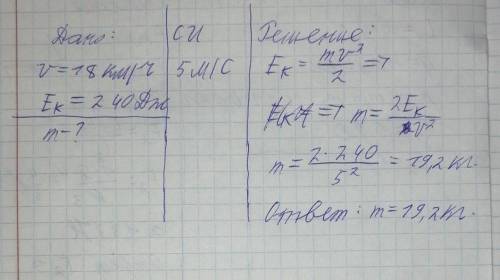 Дано:
v = 18 км/ч
Eк = 240 Дж
m - ?
СИ
5 м/с
Решение:
Eк = mv²/2 =>
=> m = 2Eк/v²
m = 2·240/5² = 19,2 кг.
Ответ: m = 19,2 кг.